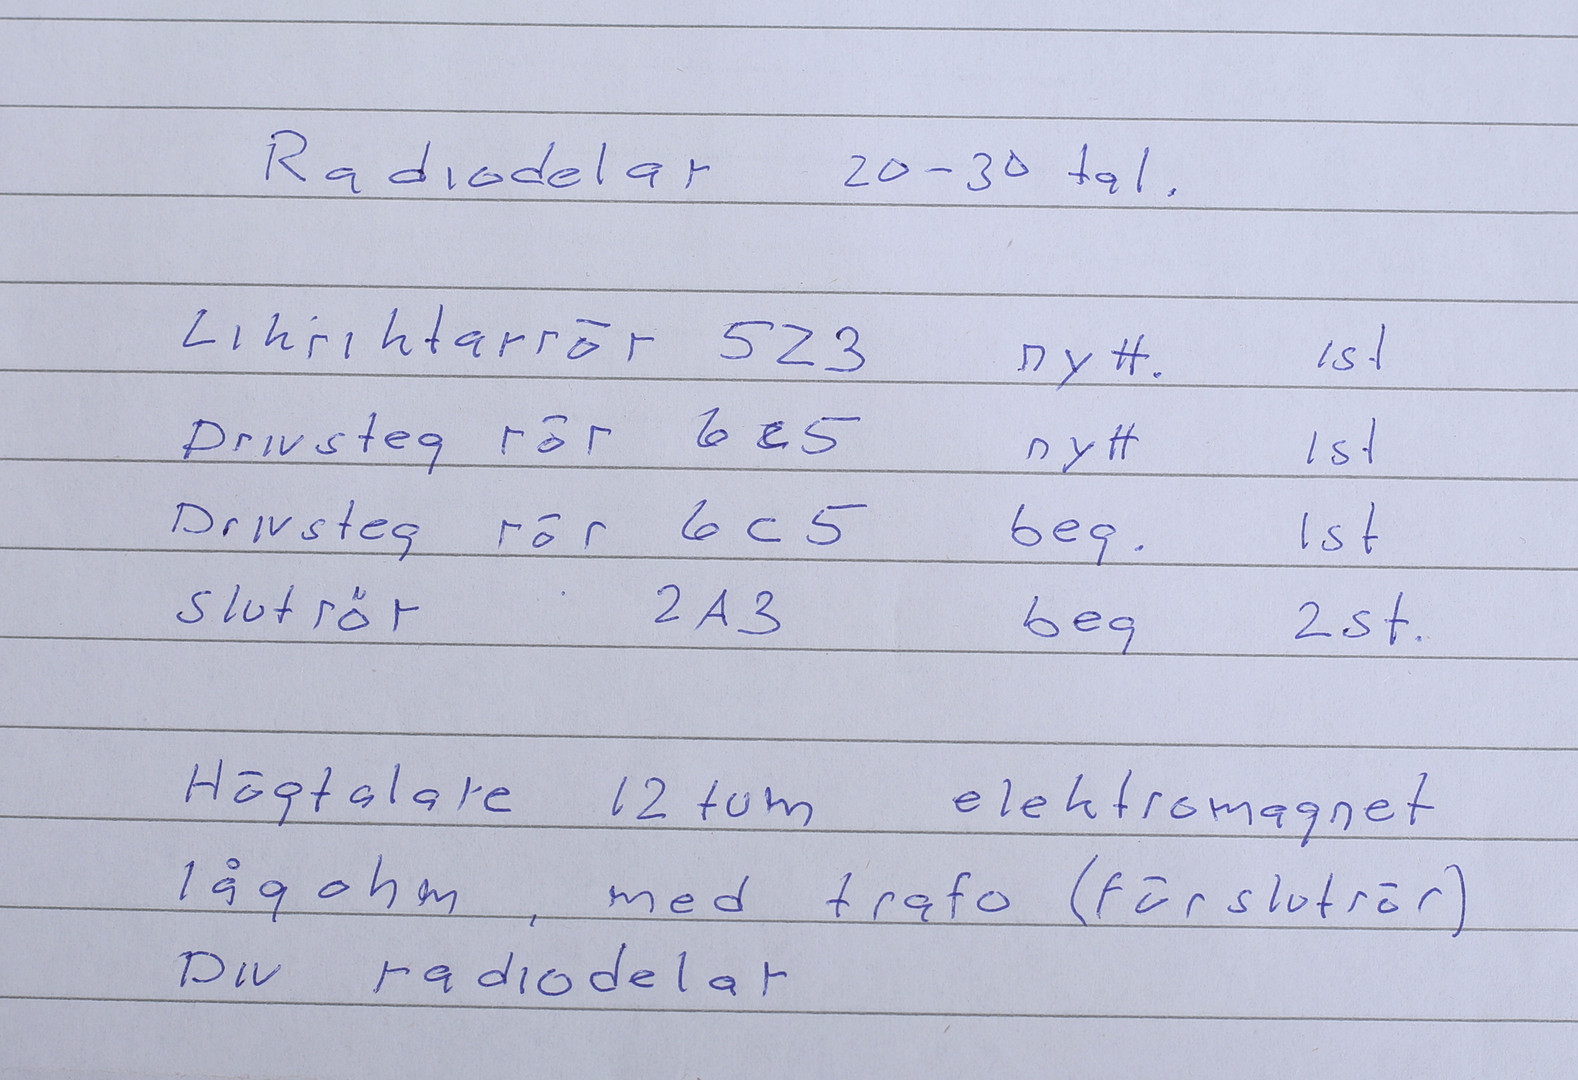 Radiodelar 20-30 tal.
Likriktarrör 5Z3 nytt. 1st
Drivsteg rör 6c5 nytt 1st
Drivsteg rör 6c5 beg. 1st
Slutrör 2A3 beg 2st.
Högtalare 12 tum elektromagnet
lågohm, med trafo (för slutrör)
Div radiodelar